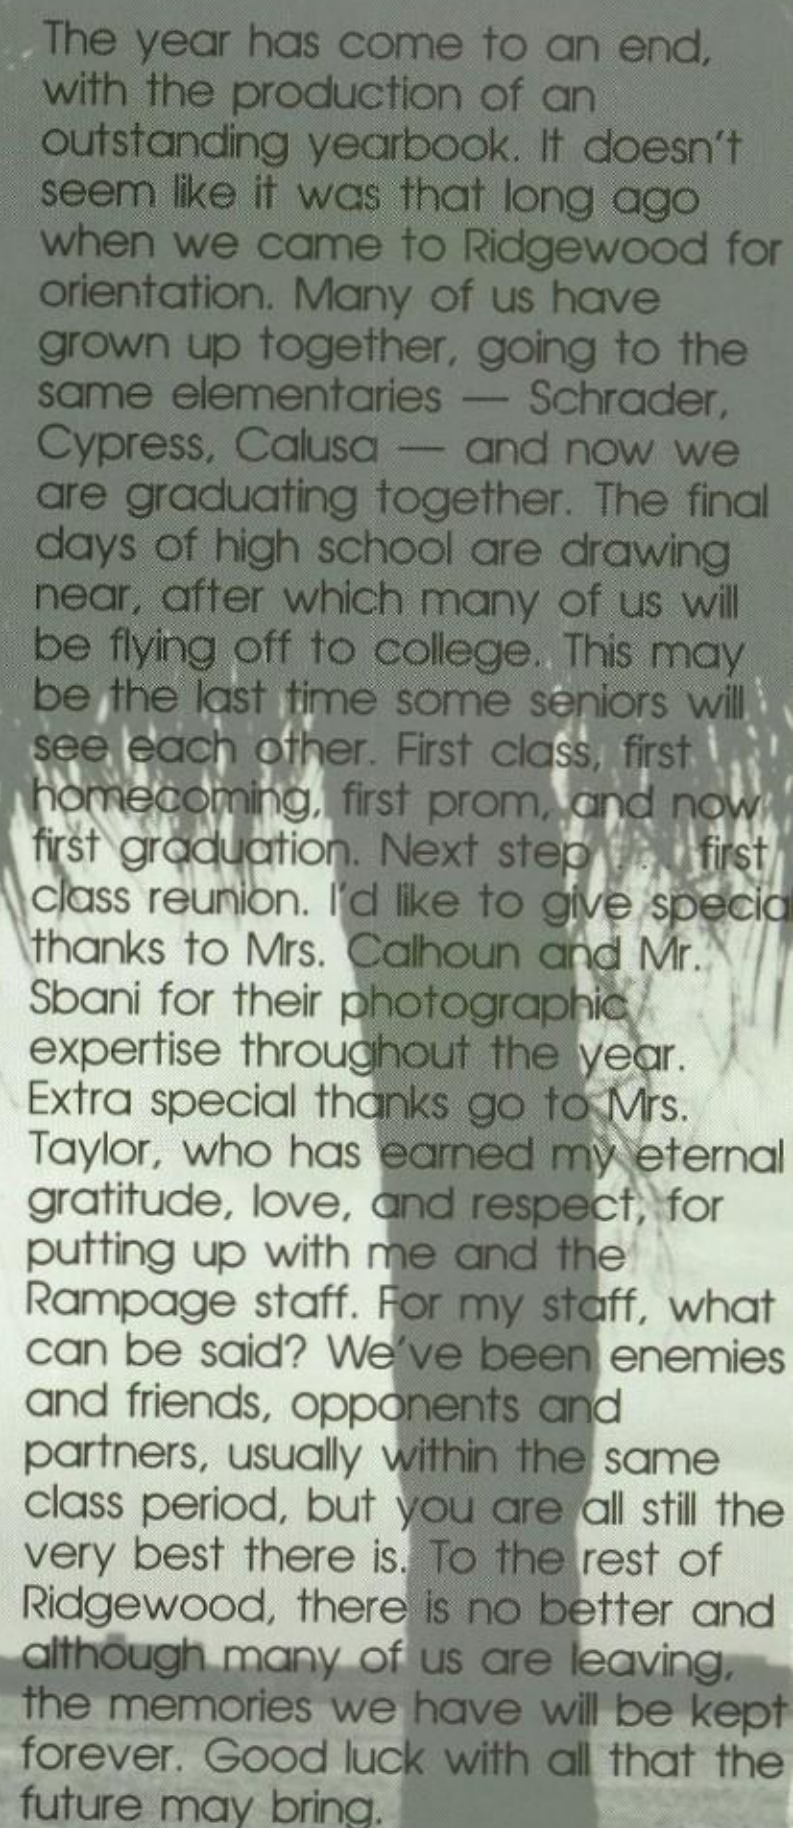 The year has come to an end,
with the production of an
outstanding yearbook. It doesn't
seem like it was that long ago
when we came to Ridgewood for
orientation. Many of us have
grown up together, going to the
same elementaries — Schrader,
Cypress, Calusa — and now we
are graduating together. The final
days of high school are drawing
near, after which many of us will
be flying off to college. This may
be the last time some seniors will
see each other. First class, first
homecoming, first prom, and now
first graduation. Next step . . . first
class reunion. I'd like to give special
thanks to Mrs. Calhoun and Mr.
Sbani for their photographic
expertise throughout the year.
Extra special thanks go to Mrs.
Taylor, who has earned my eternal
gratitude, love, and respect, for
putting up with me and the
Rampage staff. For my staff, what
can be said? We've been enemies
and friends, opponents and
partners, usually within the same
class period, but you are all still the
very best there is. To the rest of
Ridgewood, there is no better and
although many of us are leaving,
the memories we have will be kept
forever. Good luck with all that the
future may bring.